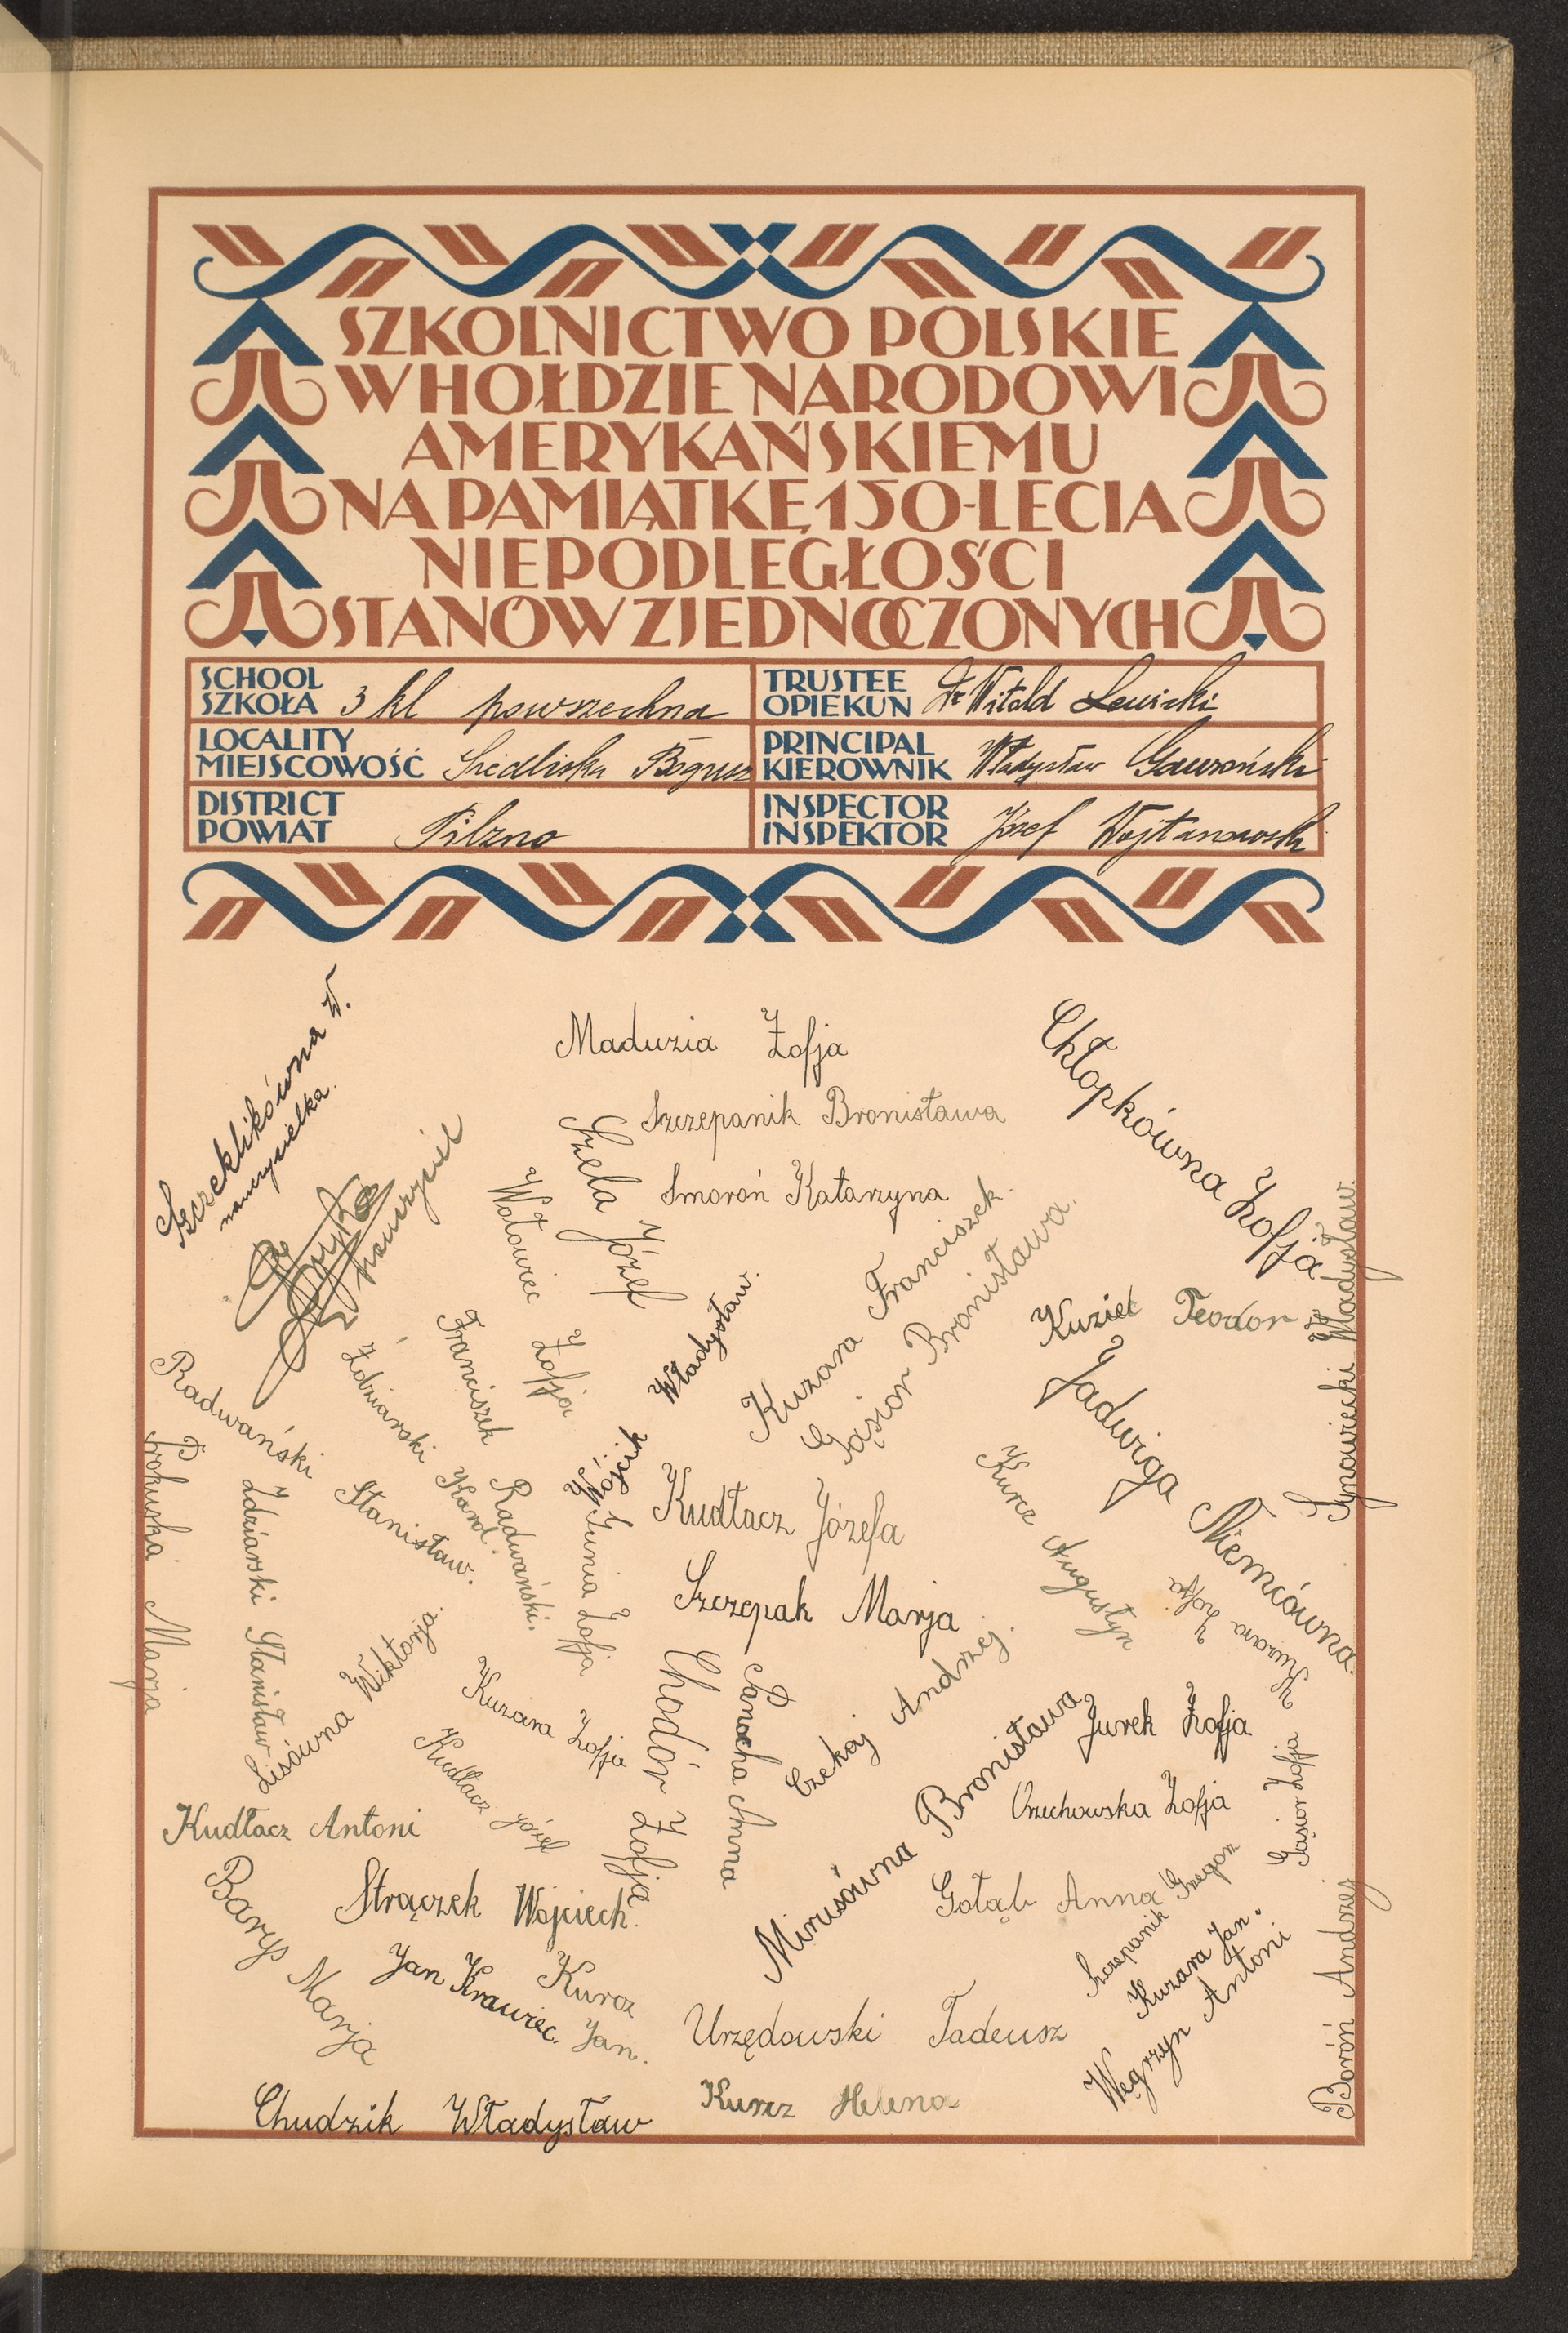 SZKOLNICTWO POLSKIE
W HOŁDZIE NARODOWI
AMERYKAŃSKIEMU
NA PAMIĄTKĘ 150-LECIA
NIEPODLEGŁOŚCI
STANÓW ZJEDNOCZONYCH
SCHOOL
SZKOŁA 3 kl powszechna
TRUSTEE
OPIEKUN Dr Witold Lewicki
LOCALITY
MIEJSCOWOŚĆ Siedliska Bogusz
PRINCIPAL
KIEROWNIK Władysław Gawroński
DISTRICT
POWIAT Pilzno
INSPECTOR
INSPEKTOR Józef Wojtanowski
Szczeklikówna W.
nauczycielka.
nauczyciel
Maduzia Zofja
Szczepanik Bronisława
Smoroń Katarzyna
Chłopkówna Zofja
Szela Józef
Wołowiec Zofja
Władysław.
Wójcik
Kuzara Franciszek.
Gąsior Bronisława.
Kuziel Teodor
Synowiecki Władysław.
Jadwiga Niemcówna.
Radwański Stanisław.
Żdziarski Karol.
Franciszek
Radwański.
Prokuska Marja
Żdziarski Stanisław
Kunia Zofja
Kudłacz Józefa
Kurcz Augustyn
Szczepak Marja
Kuzara Zofja
Lisówna Wiktorja.
Kuzara Zofja
Kudłacz Józef
Chodór Zofja
Panocha Anna
Czekaj Andrzej.
Mirusówna Bronisława
Jurek Zofja
Orzechowska Zofja
Gąsior Zofja
Kudłacz Antoni
Strączek Wojciech.
Gołąb Anna
Szczepanik Grzegorz
Kuzara Jan.
Węgrzyn Antoni
Boroń Andrzej
Barys Marja
Jan Krawiec.
Kurcz Jan.
Urzędowski Tadeusz
Chudzik Władysław
Kurcz Helena